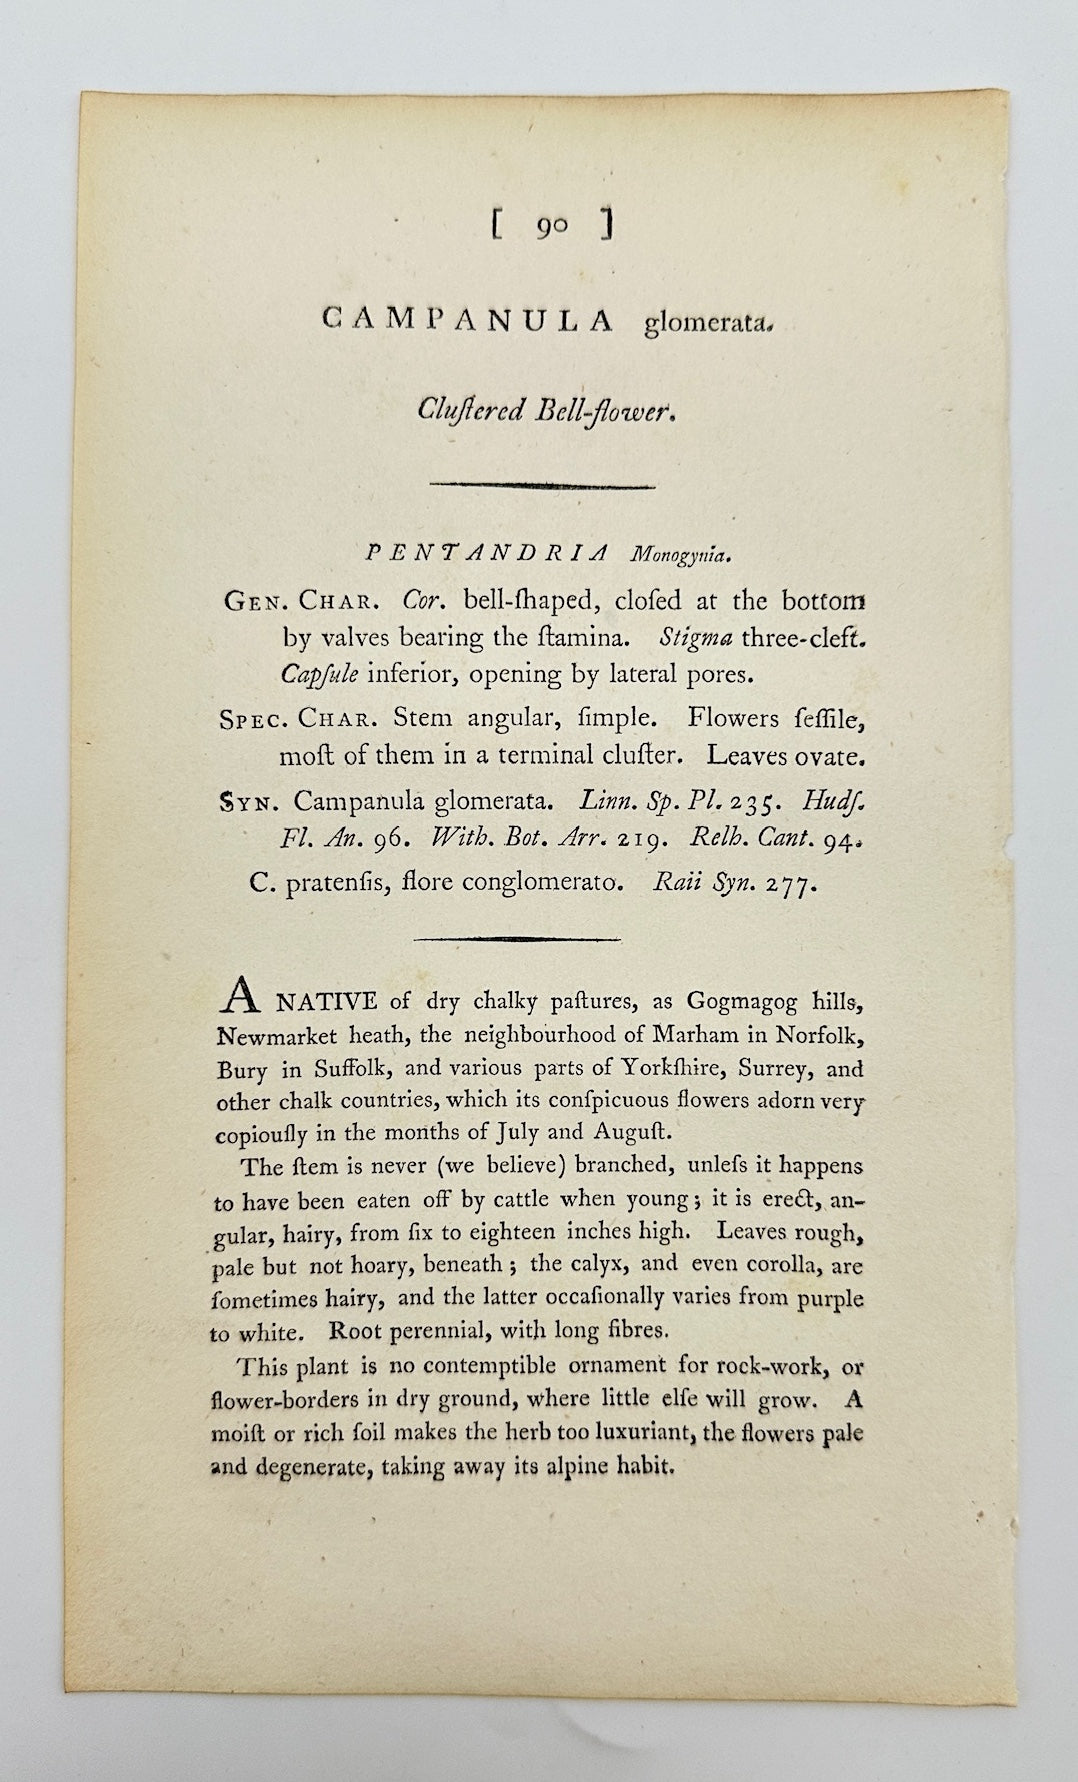 [ 90 ]
CAMPANULA glomerata.
Cluſtered Bell-flower.
PENTANDRIA Monogynia.
GEN. CHAR. Cor. bell-ſhaped, cloſed at the bottom
by valves bearing the ſtamina. Stigma three-cleft.
Capſule inferior, opening by lateral pores.
SPEC. CHAR. Stem angular, ſimple. Flowers ſeſſile,
moſt of them in a terminal cluſter. Leaves ovate.
SYN. Campanula glomerata. Linn. Sp. Pl. 235. Hudſ.
Fl. An. 96. With. Bot. Arr. 219. Relh. Cant. 94.
C. pratenſis, flore conglomerato. Raii Syn. 277.
A NATIVE of dry chalky paſtures, as Gogmagog hills,
Newmarket heath, the neighbourhood of Marham in Norfolk,
Bury in Suffolk, and various parts of Yorkſhire, Surrey, and
other chalk countries, which its conſpicuous flowers adorn very
copiouſly in the months of July and Auguſt.
The ſtem is never (we believe) branched, unleſs it happens
to have been eaten off by cattle when young; it is erect, an-
gular, hairy, from ſix to eighteen inches high. Leaves rough,
pale but not hoary, beneath; the calyx, and even corolla, are
ſometimes hairy, and the latter occaſionally varies from purple
to white. Root perennial, with long fibres.
This plant is no contemptible ornament for rock-work, or
flower-borders in dry ground, where little elſe will grow. A
moiſt or rich ſoil makes the herb too luxuriant, the flowers pale
and degenerate, taking away its alpine habit.